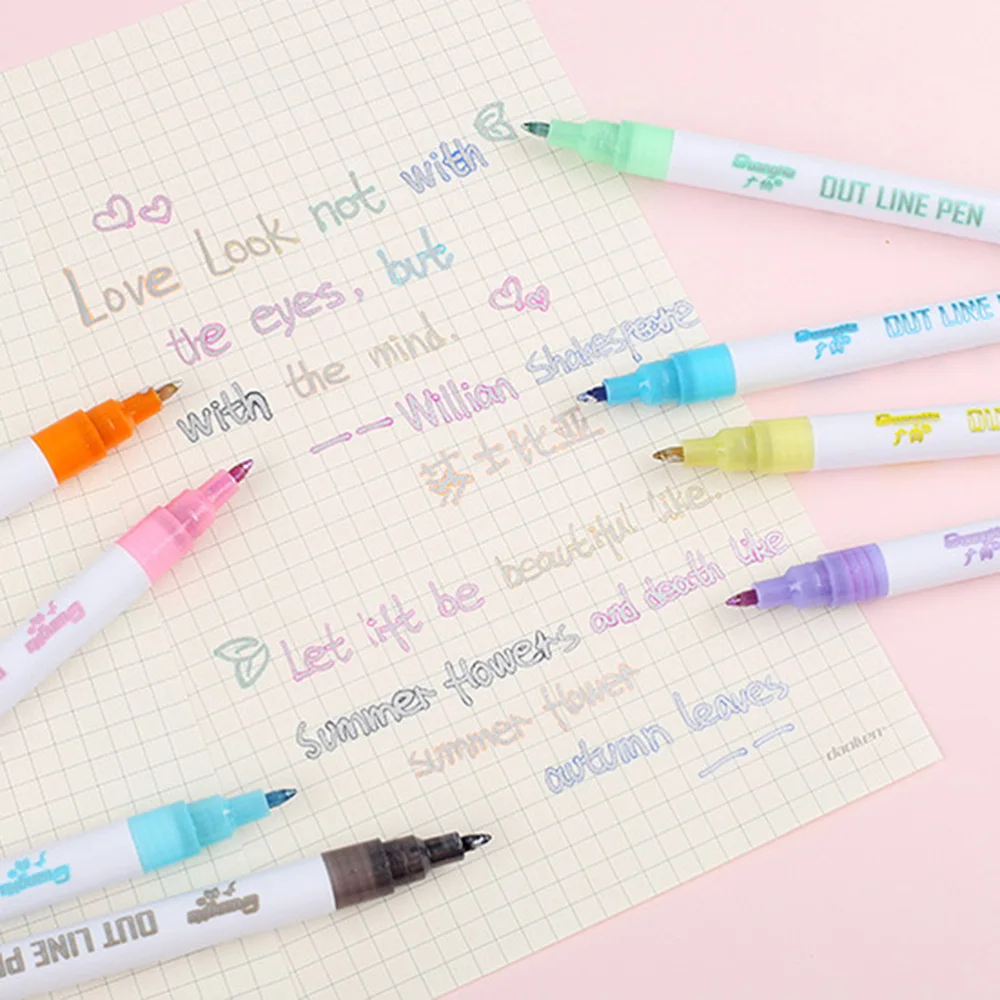 Love Look not with
the eyes, but
with the mind.
——Willian Shakespeare
莎士比亚
Let lift be beautiful like.
summer flowers and death like
summer flower
autumn leaves
OUT LINE PEN
广纳
OUT LINE
广纳
广纳
OU
广纳
广纳
广纳
广纳
OUT LINE PE